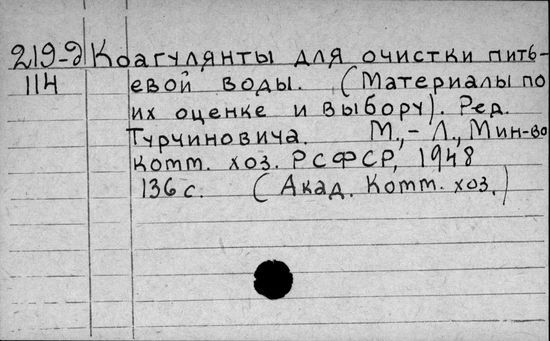 219-д Коагулянты для очистки пить-
114 евой воды. (Материалы по
их оценке и выбору). Ред.
Турчиновича. М.,-Л., Мин-во
Комм. хоз. РСФСР, 1948
136 с. (Акад. Комм. хоз.)